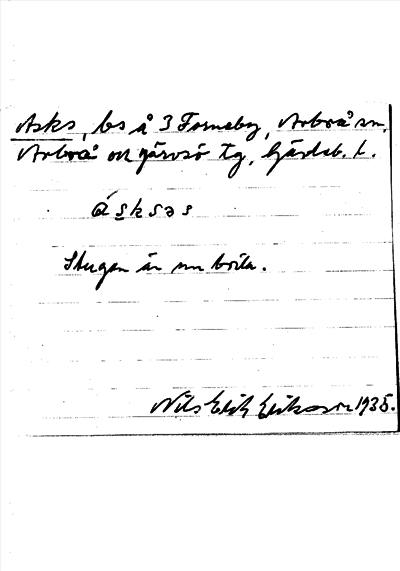 Asks, bs å 3 Forneby, Arbrå sn,
Arbrå och Järvsö tg, Gävleb. l.
áskses
Stugan är nu borta.
Nils Erik Eriksson 1935.